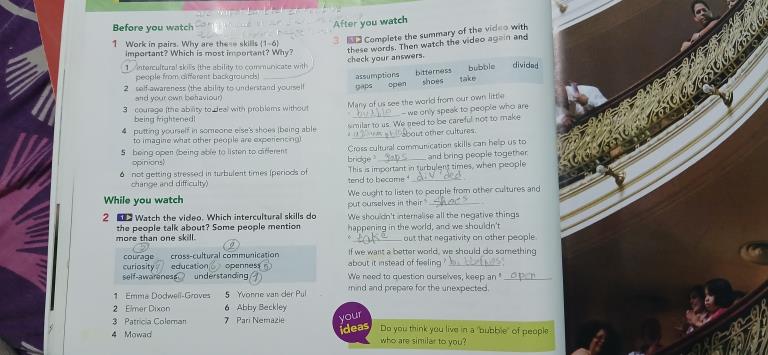 Before you watch
1 Work in pairs. Why are these skills (1–6)
important? Which is most important? Why?
1 intercultural skills (the ability to communicate with
people from different backgrounds)
2 self-awareness (the ability to understand yourself
and your own behaviour)
3 courage (the ability to deal with problems without
being frightened)
4 putting yourself in someone else's shoes (being able
to imagine what other people are experiencing)
5 being open (being able to listen to different
opinions)
6 not getting stressed in turbulent times (periods of
change and difficulty)
While you watch
2 1 Watch the video. Which intercultural skills do
the people talk about? Some people mention
more than one skill.
courage cross-cultural communication
curiosity education openness
self-awareness understanding
1 Emma Dodwell-Groves
2 Elmer Dixon
3 Patricia Coleman
4 Mowad
5 Yvonne van der Pul
6 Abby Beckley
7 Pari Nemazie
After you watch
3 1 Complete the summary of the video with
these words. Then watch the video again and
check your answers.
assumptions bitterness bubble divided
gaps open shoes take
Many of us see the world from our own little
1 bubble – we only speak to people who are
similar to us. We need to be careful not to make
2 about other cultures.
Cross cultural communication skills can help us to
bridge 3 gaps and bring people together.
This is important in turbulent times, when people
tend to become 4 divided.
We ought to listen to people from other cultures and
put ourselves in their 5 shoes.
We shouldn't internalise all the negative things
happening in the world, and we shouldn't
6 take out that negativity on other people.
If we want a better world, we should do something
about it instead of feeling 7
We need to question ourselves, keep an 8 open
mind and prepare for the unexpected.
your
ideas
Do you think you live in a 'bubble' of people
who are similar to you?